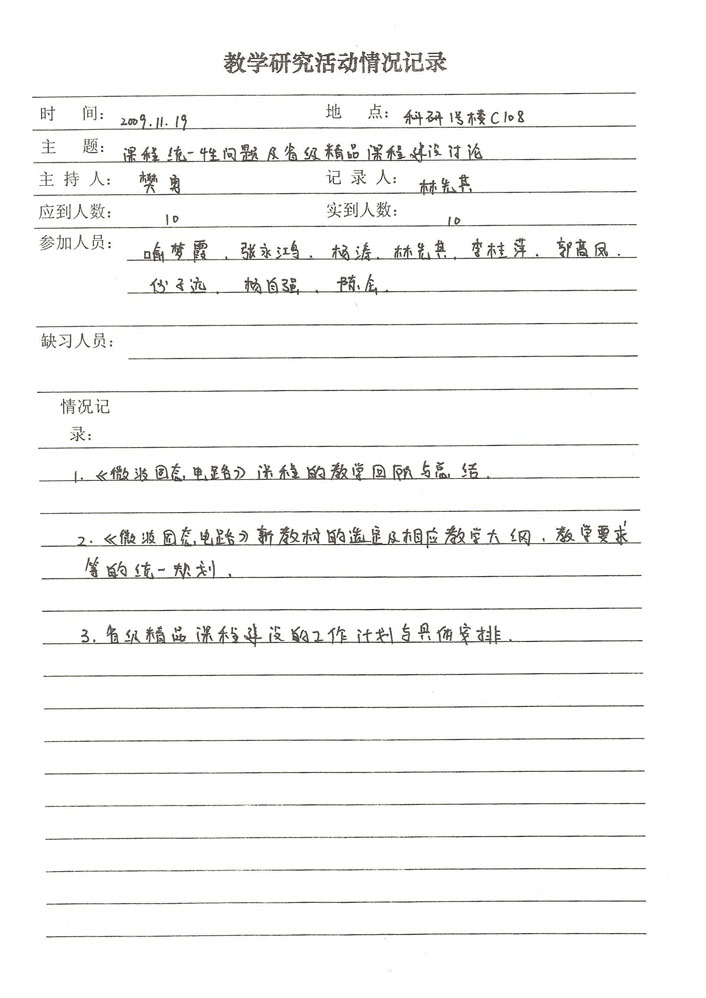 教学研究活动情况记录
时 间: 2009.11.19 地 点: 科研楼C108
主 题: 课程统一性问题及省级精品课程建设讨论
主 持 人: 樊勇 记 录 人: 林先其
应到人数: 10 实到人数: 10
参加人员: 喻梦霞、张永鸿、杨涛、林先其、李桂萍、郭高凤、
杨自强、陈会、
缺习人员:
情况记
录:
1.《微波固态电路》课程的教学回顾与总结.
2.《微波固态电路》新教材的选定及相应教学大纲、教学要求
等的统一规划.
3.省级精品课程建设的工作计划与具体安排.